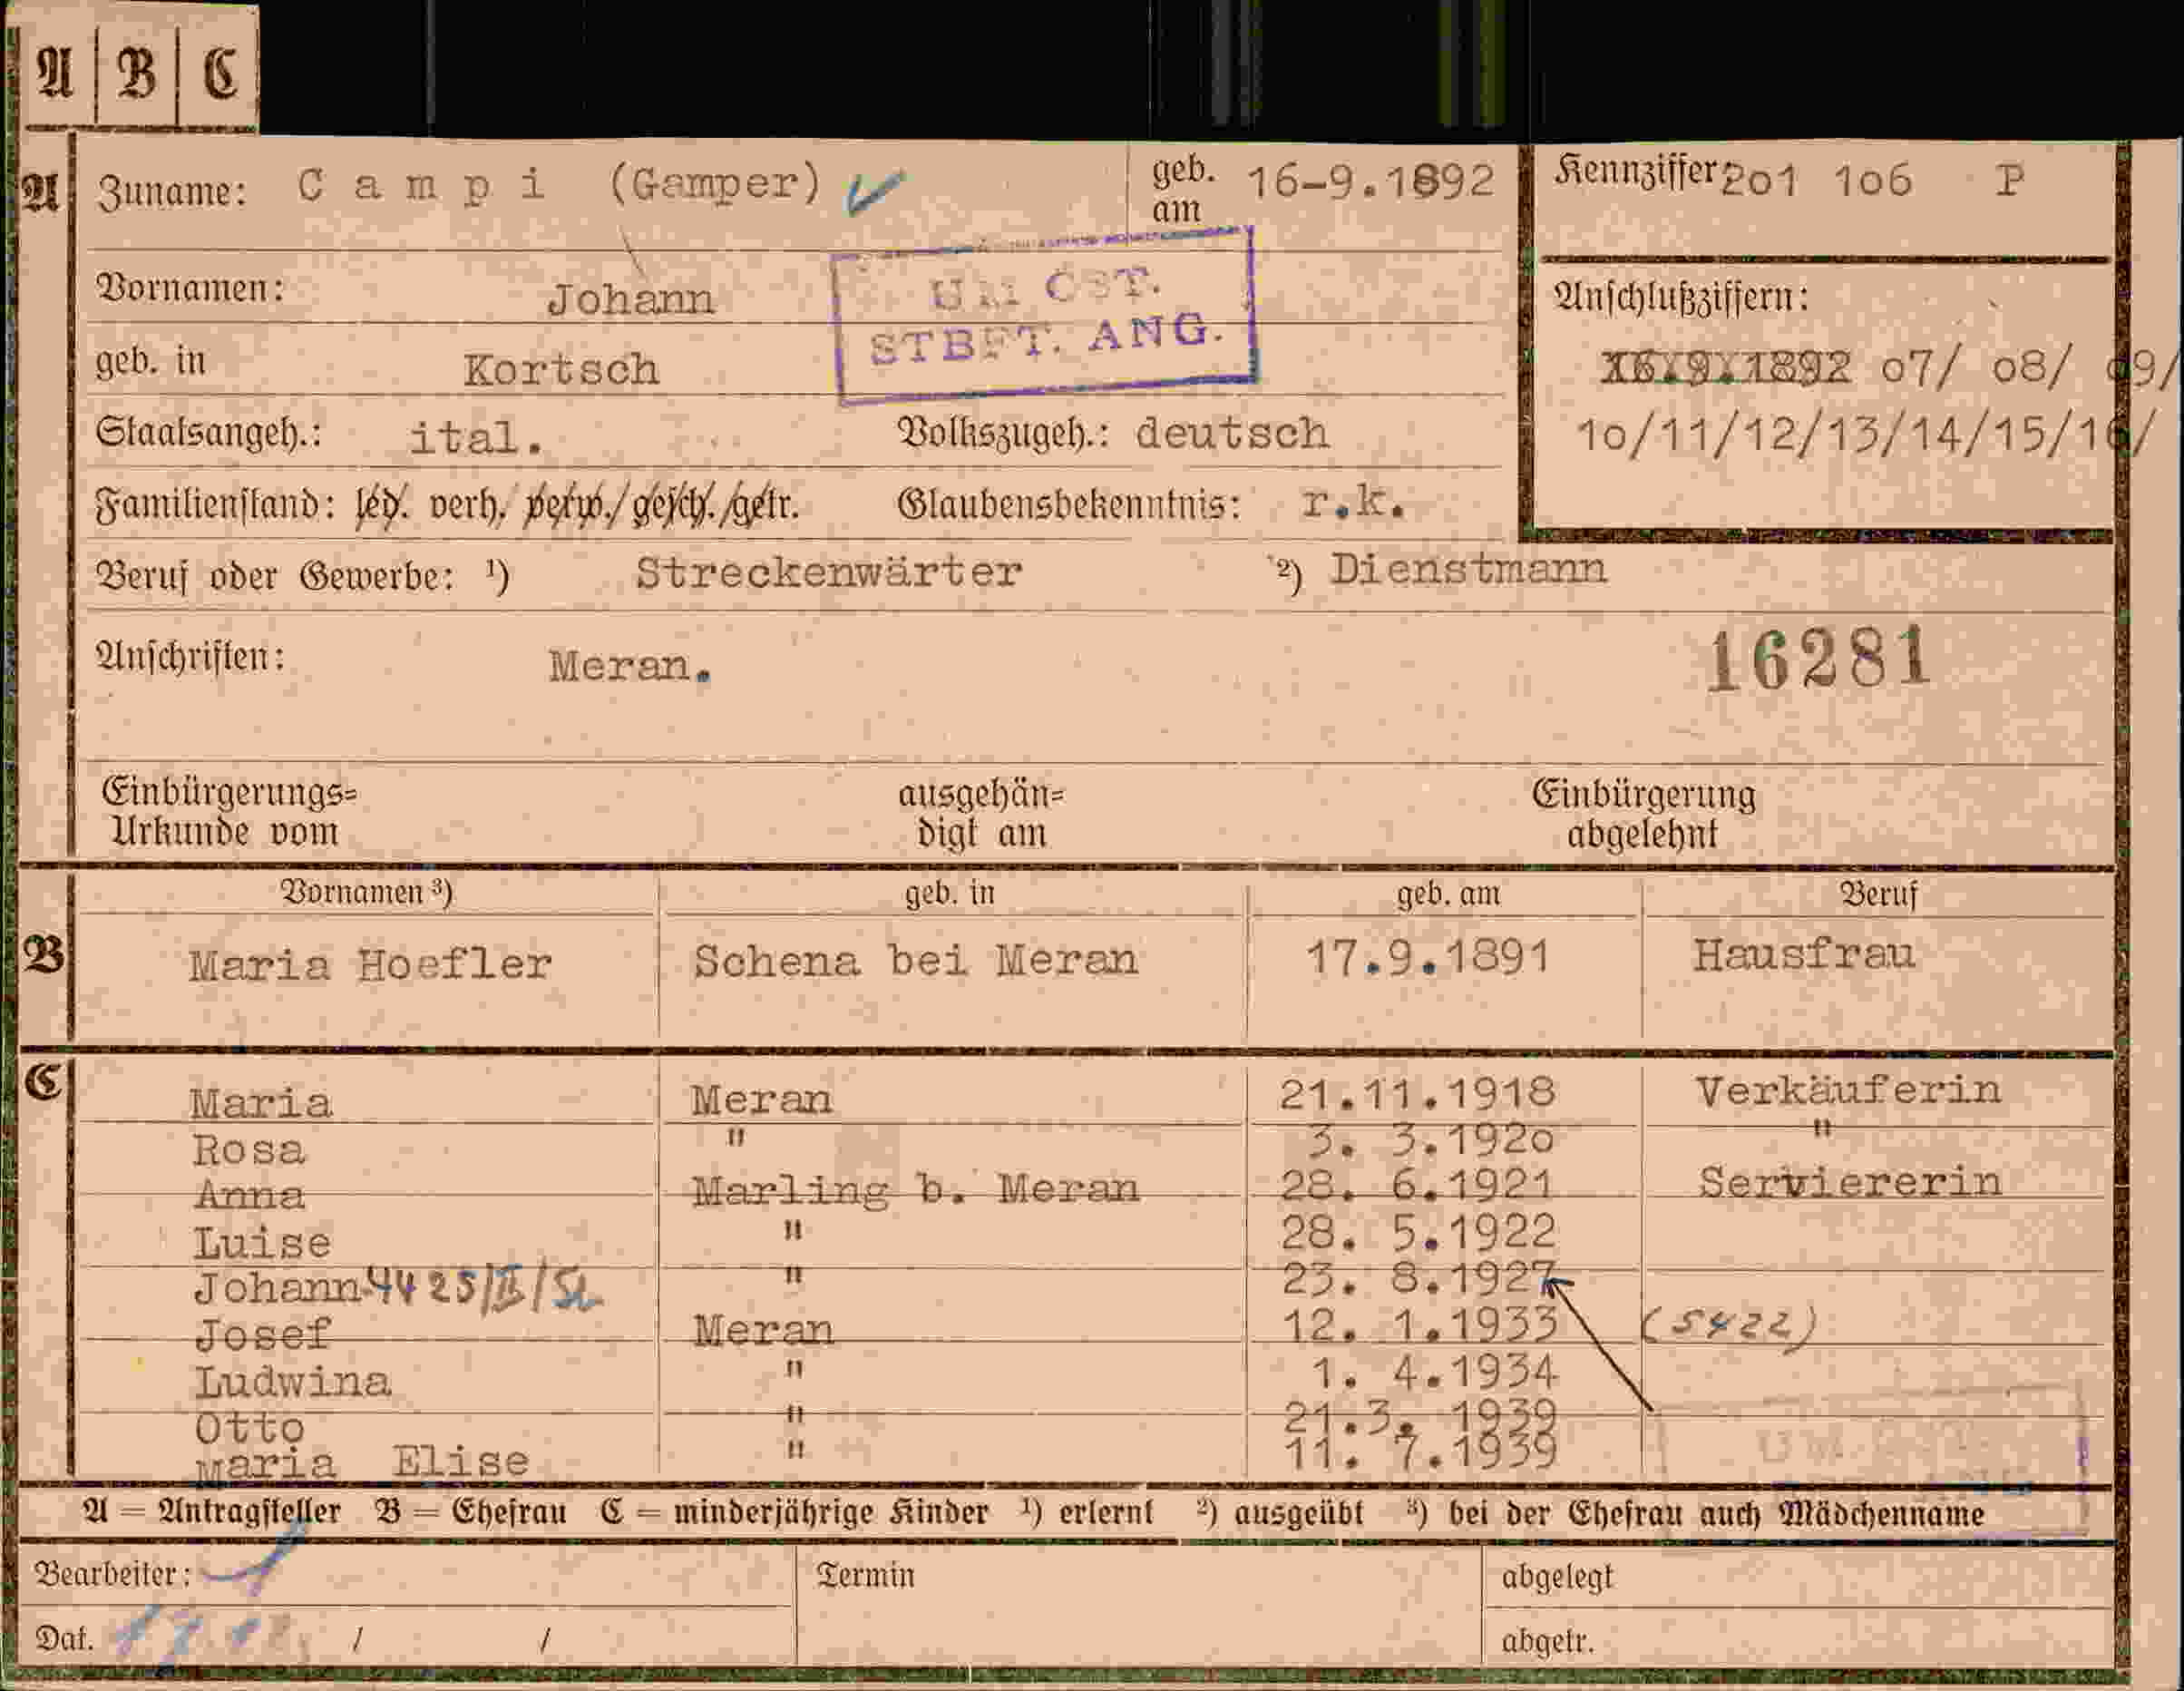 A | B | C
A Zuname: Campi (Gamper) geb. am 16-9.1892 Kennziffer 201 106 P
Vornamen: Johann
UM ÖST.
STBFT. ANG.
Anschlußziffern:
geb. in Kortsch
16.9.1892 07/ 08/ 09/
Staatsangeh.: ital. Volkszugeh.: deutsch
10/11/12/13/14/15/16/
Familienstand: led. verh. verw./gesch./getr. Glaubensbekenntnis: r.k.
Beruf oder Gewerbe: ¹) Streckenwärter ²) Dienstmann
Anschriften: Meran. 16281
Einbürgerungs=
Urkunde vom
ausgehän=
digt am
Einbürgerung
abgelehnt
Vornamen ³) geb. in geb. am Beruf
B Maria Hoefler Schena bei Meran 17.9.1891 Hausfrau
C Maria Meran 21.11.1918 Verkäuferin
Rosa " 3. 3.1920 "
Anna Marling b. Meran 28. 6.1921 Serviererin
Luise " 28. 5.1922
Johann 4425/II/ " 23. 8.1927
Josef Meran 12. 1.1933 (5422)
Ludwina " 1. 4.1934
Otto " 21.3. 1939
Maria Elise " 11. 7.1939
A = Antragsteller B = Ehefrau C = minderjährige Kinder ¹) erlernt ²) ausgeübt ³) bei der Ehefrau auch Mädchenname
Bearbeiter: Termin abgelegt
Dat. / / abgetr.